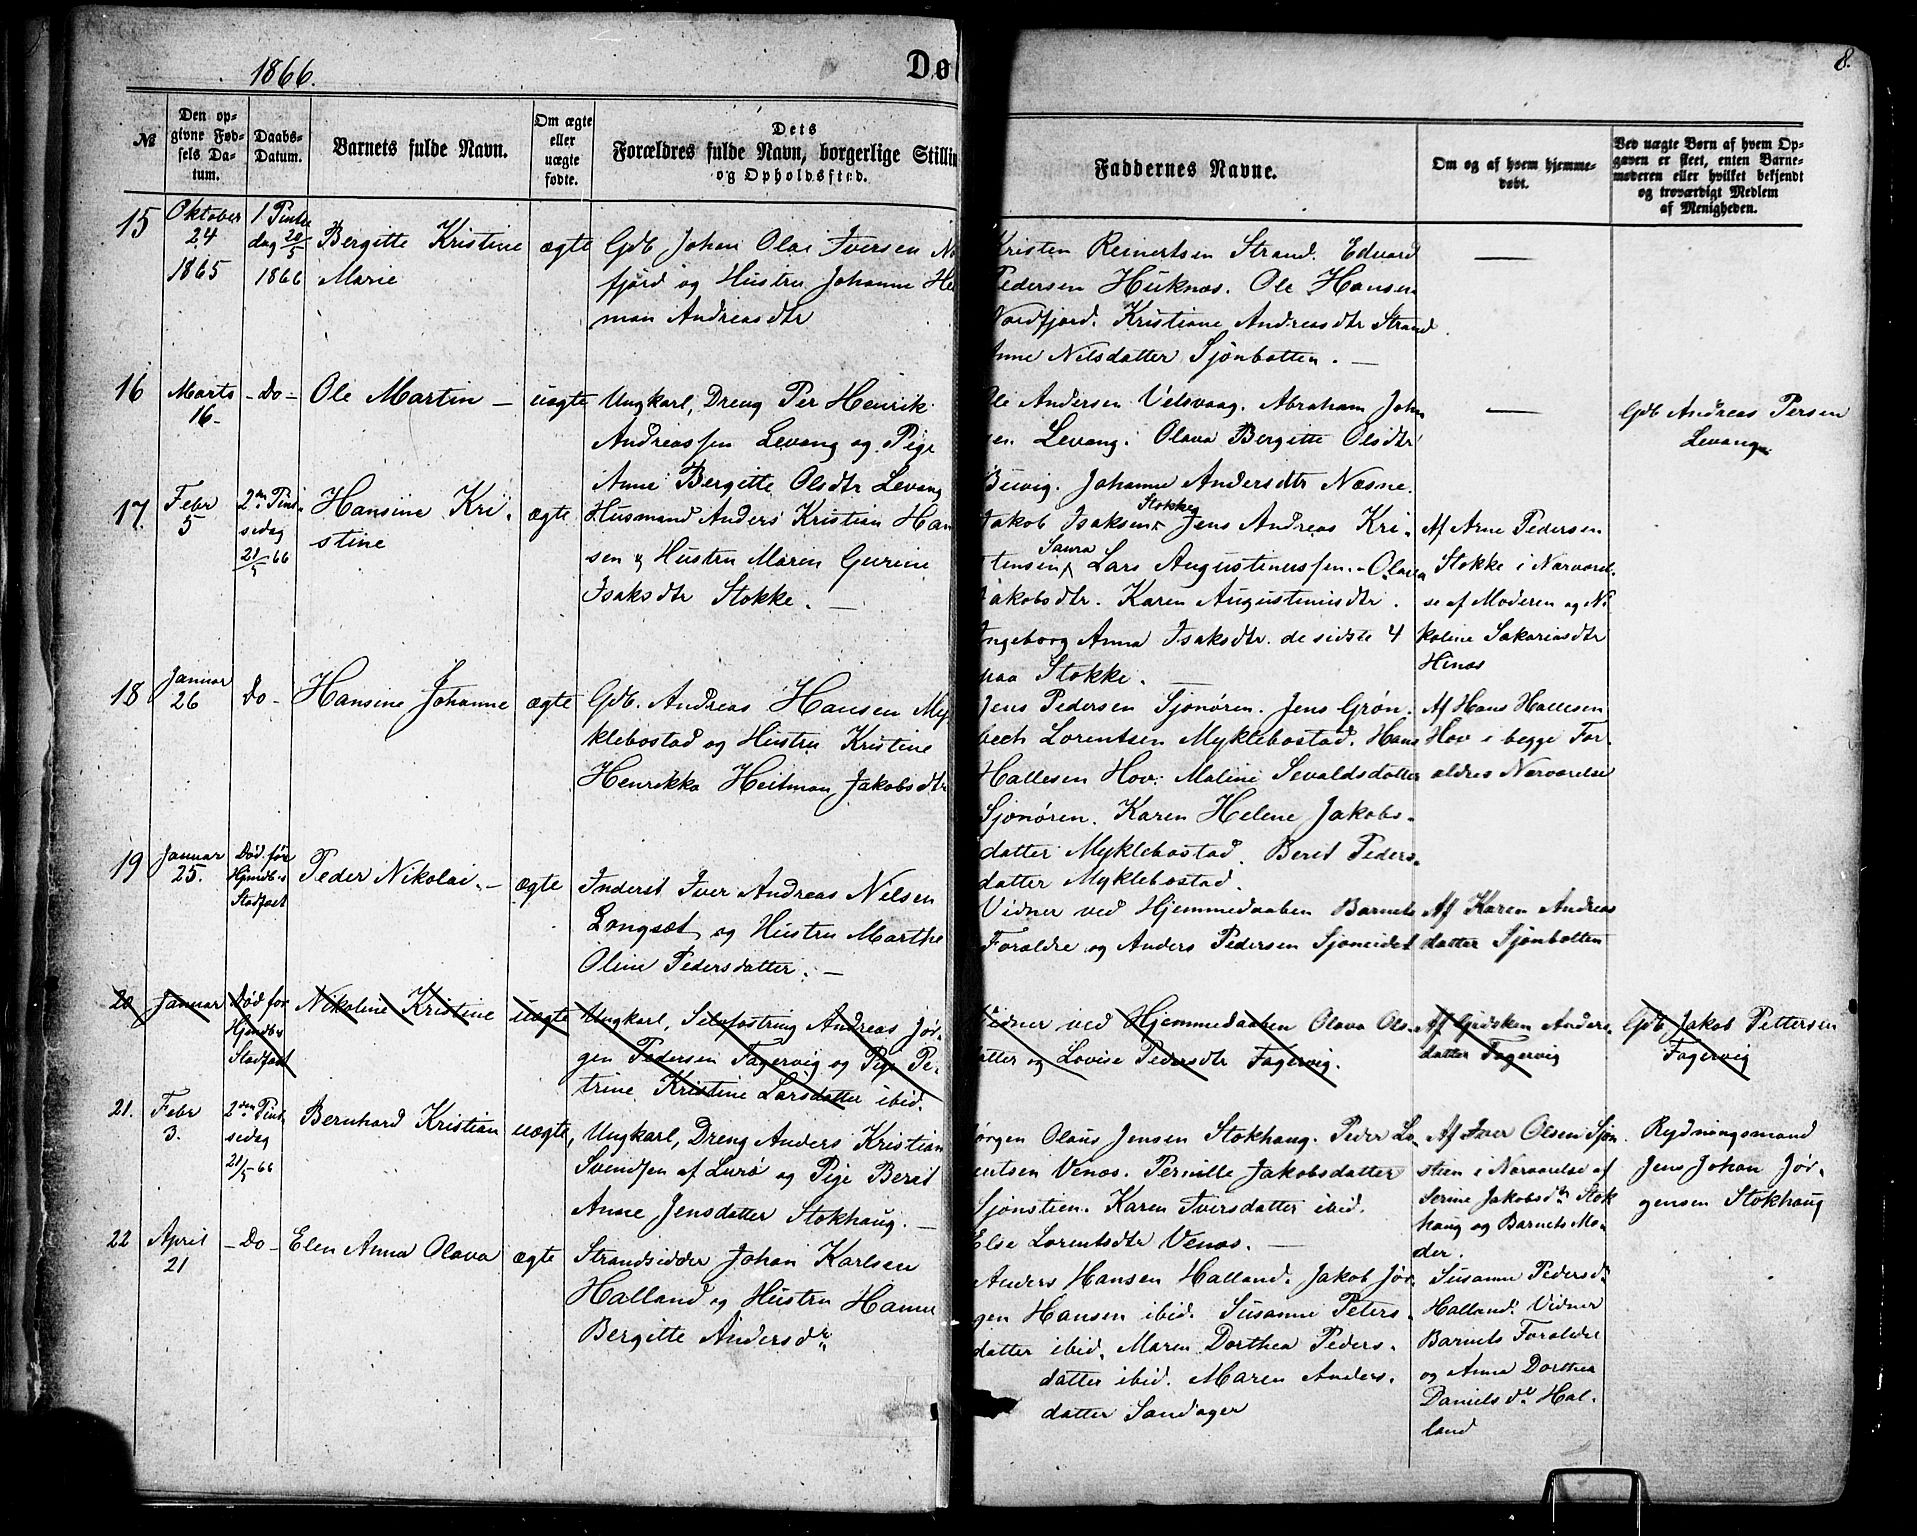 1866.
Dø
8.
№
Den op-
givne Fød-
sels Da-
tum.
Daabs-
Datum.
Barnets fulde Navn.
Om ægte
eller
uægte
fødte.
Dets
Forældres fulde Navn, borgerlige Stillin
og Opholdssted.
Faddernes Navne.
Om og af hvem hjemme-
døbt.
Ved uægte Børn af hvem Op-
gaven er skeet, enten Barne-
moderen eller hvilket bekjendt
og troværdigt Medlem
af Menigheden.
15
Oktober
24
1865
1 Pintse
dag 20/5
1866
Bergitte Kristine
Marie
ægte
Gdb Johan Olai Iversen No
fjord og Hustru Johanne Hei
man Andreasdtr
Kristen Reinertsen Strand. Edvard
Pedersen Huknæs. Ole Hansen
Nordfjord. Kristiane Andreasdtr Strand
Anne Nilsdatter Sjönbotten. —
—
16
Marts
16-
- Do -
Ole Martin —
uægte
Ungkarl, Dreng Per Henrik
Andreassen Levang og Pige
Anne Bergitte Olsdtr Levang
Ole Andersen Velsvaag. Abraham Johan
gen Levang. Olava Bergitte Olsdtr
Buvig. Johanne Andersdtr Næsne.
—
Gdb Andreas Persen
Levang
17
Febr
5
2den Pint
sedag
21/5 66
Hansine Kri-
stine
ægte
Husmand Anders Kristian Han
sen & Hustru Maren Gurine
Isaksdtr Stokke. —
Jakob Isaksen Stokke Jens Andreas Kri-
stensen Saura Lars Augustinussen. - Olava
Jakobsdtr. Karen Augustinusdtr.
Ingeborg Anna Isaksdtr. de sidste 4
paa Stokke. —
Af Arne Pedersen
Stokke i Nærværel-
se af Moderen og Ni
koline Sakariasdtr
Hinæs
18
Januar
26
Do -
Hansine Johanne
ægte
Gdb. Andreas Hansen My
klebostad og Hustru Kristine
Henrikka Heitman Jakobsdtr
Jens Pedersen Sjonøren. Jens Grøn-
bech Lorentsen Myklebostad. Hans
Hallesen Hov. Maline Sevaldsdatter
Sjonøren. Karen Helene Jakobs-
datter Myklebostad. Berit Peders-
datter Myklebostad.
Af Hans Hallesen
Hov i begge For-
ældres Nærværelse
19
Januar
25.
Død før
Hjmdb's
Stadfæst
Peder Nikolai. —
ægte
Inderst Iver Andreas Nilsen
Langsæt og Hustru Marthe
Oline Pedersdatter. —
Vidner ved Hjemmedaaben Barnets
Forældre og Anders Pedersen Sjoneidet
Af Karen Andreas
datter Sjønbotten
20
Januar
Død før
Hjmdb's
Stadfæst
Nikoline Kristine
uægte
Ungkarl, Selvfostring Andreas Jør-
gen Pedersen Fagervig og Pige Pe-
trine Kristine Larsdatter ibid.
Vidner ved Hjemmedaaben Olava Ols-
datter og Lovise Pedersdtr Fagervig.
Af Gidsken Anders-
datter Fagervig
Gdb Jakob Pettersen
Fagervig
21.
Febr
3.
2den Pint
sedag
21/5 66
Bernhard Kristian
uægte,
Ungkarl, Dreng Anders Kristian
Svendsen af Lurö og Pige Berit
Anne Jensdatter Stokhaug. —
Jörgen Olaus Jensen Stokhaug. Peder Lo
rentsen Venæs. Pernille Jakobsdatter
Sjønstien. Karen Iversdatter ibid.
Else Lorentsdtr Venæs. —
Af Iver Olsen Sjøn
stien i Nærværelse af
Serine Jakobsdtr Stok
haug og Barnets Mo-
der.
Rydningsmand
Jens Johan Jør-
gensen Stokhaug
22
April
21
- Do -
Elen Anna Olava
ægte
Strandsidder Johan Karlsen
Halland og Hustru Hanna
Bergitte Andersdtr
Anders Hansen Halland. Jakob Jør-
gen Hansen ibid. Susanne Peters-
datter ibid. Maren Dorthea Peders-
datter ibid. Maren Anders-
datter Sandager
Susanne Pedersdtr
Halland. Vidner
Barnets Forældre
og Anna Dorthea
Danielsdtr Hal-
land